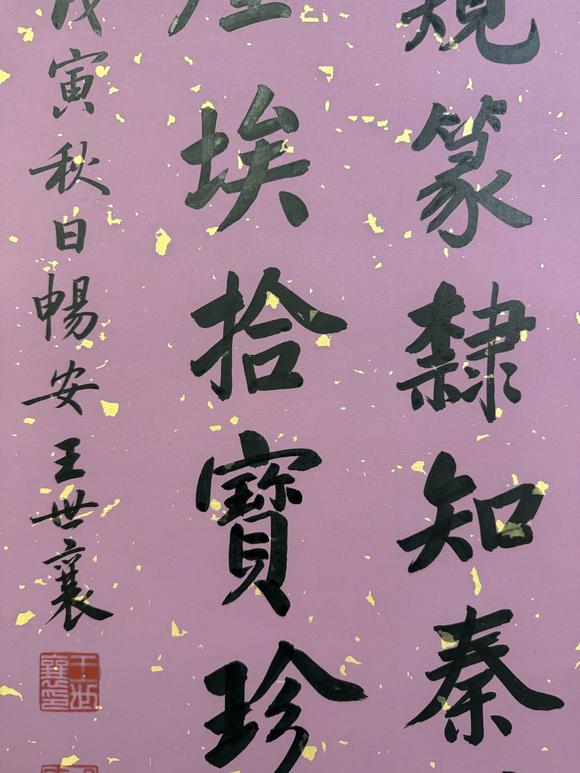 規篆隸知秦
埃拾寶珍
戊寅秋日暢安王世襄
王世襄印